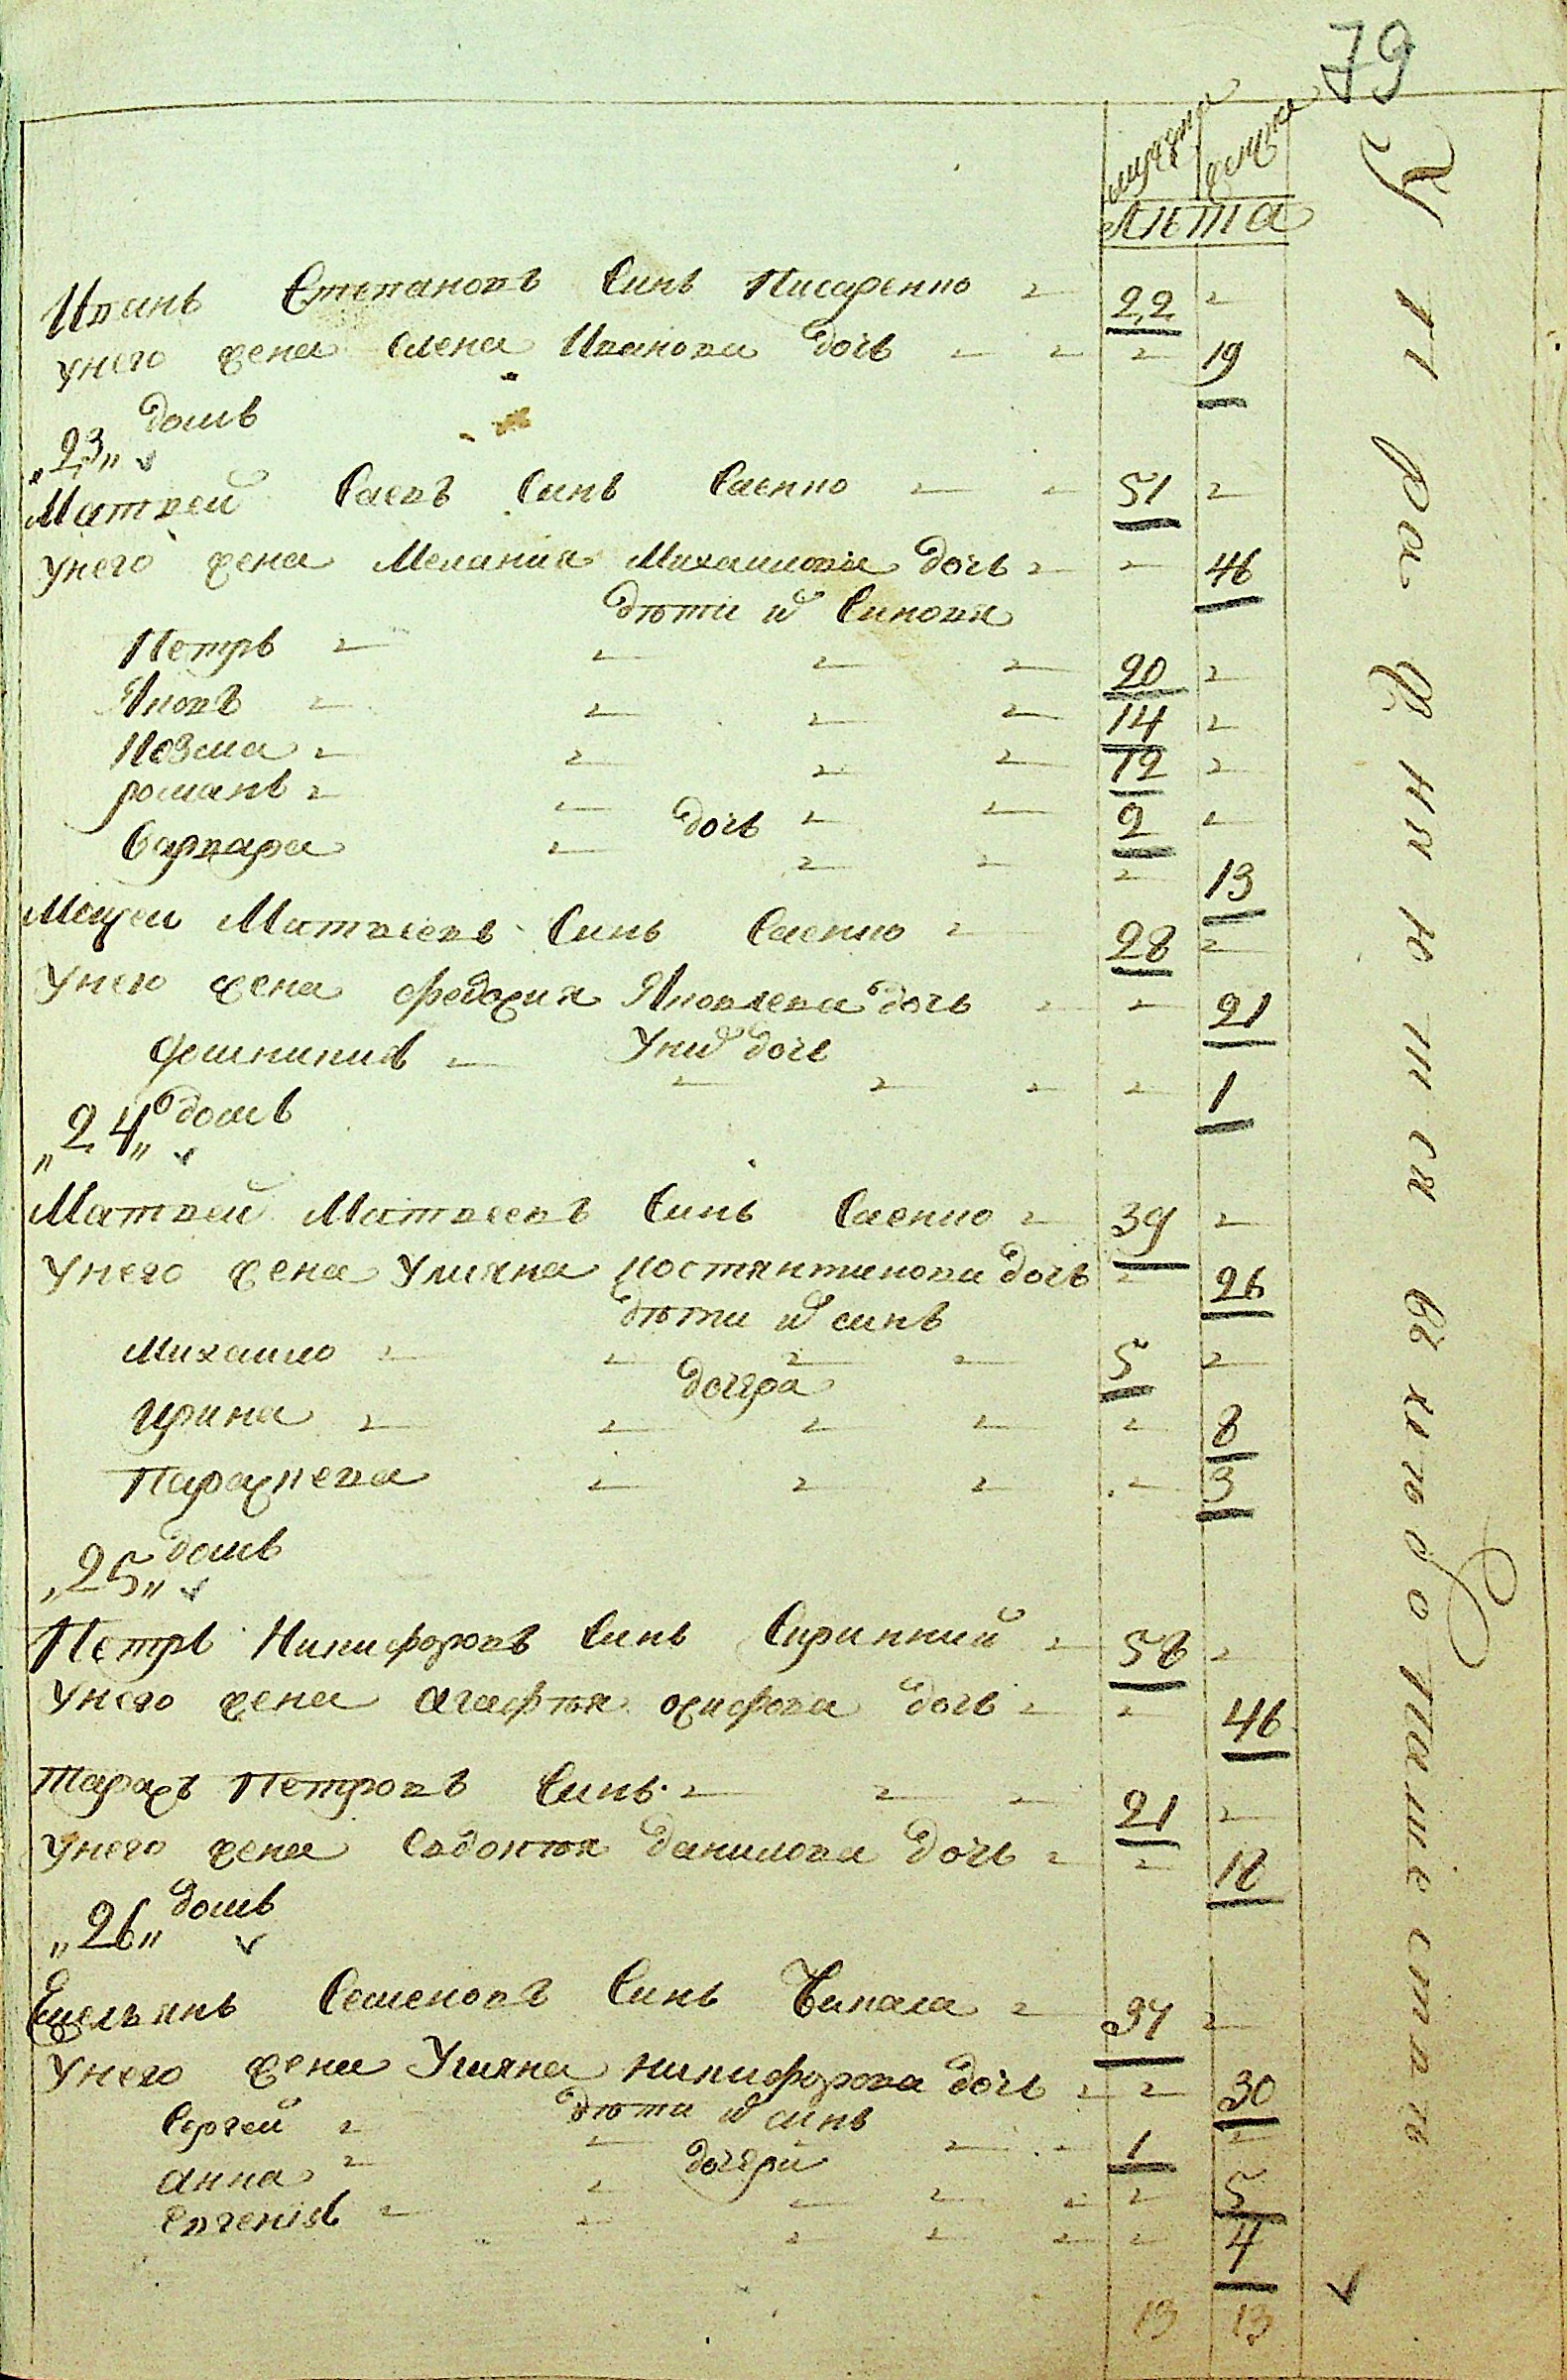 79
мужска женска
Лѣта
Иванъ Степановъ Синъ Писаренко 22
Унего жена Елена Иванова дочь 19
„23„ домъ
Матвей Саевъ Синъ Саенко 51
Унего жена Мелания Михаилова дочь 46
дѣти и Синовя
Петръ 20
Яковъ 14
Козма 12
романъ 2
варвара дочь 13
Мойсеи Матвеевъ Синъ Саенко 28
Унего жена Федосия Яковлева дочь 21
Уних дочь
1
„24„ домъ
Матвей Матвеевъ Синъ Саенко 39
Унего жена Улияна костянтинова дочь 26
дѣти и синъ
Михаило 5
дочера
Ирина 8
Параскева 3
„25„ домъ
Петръ Никифоровъ Синъ Скрипний 58
Унего жена Агафѣя осифова дочь 46
Тарасъ Петровъ Синъ 21
Унего жена Евдокѣя данилова дочь 18
„26„ домъ
Емельянъ Семеновъ Синъ Чикала 34
Унего жена Улияна никифорова дочь 30
дѣти и синъ
Сергей 1
дочери
Анна 5
Евгенія 4
13 13